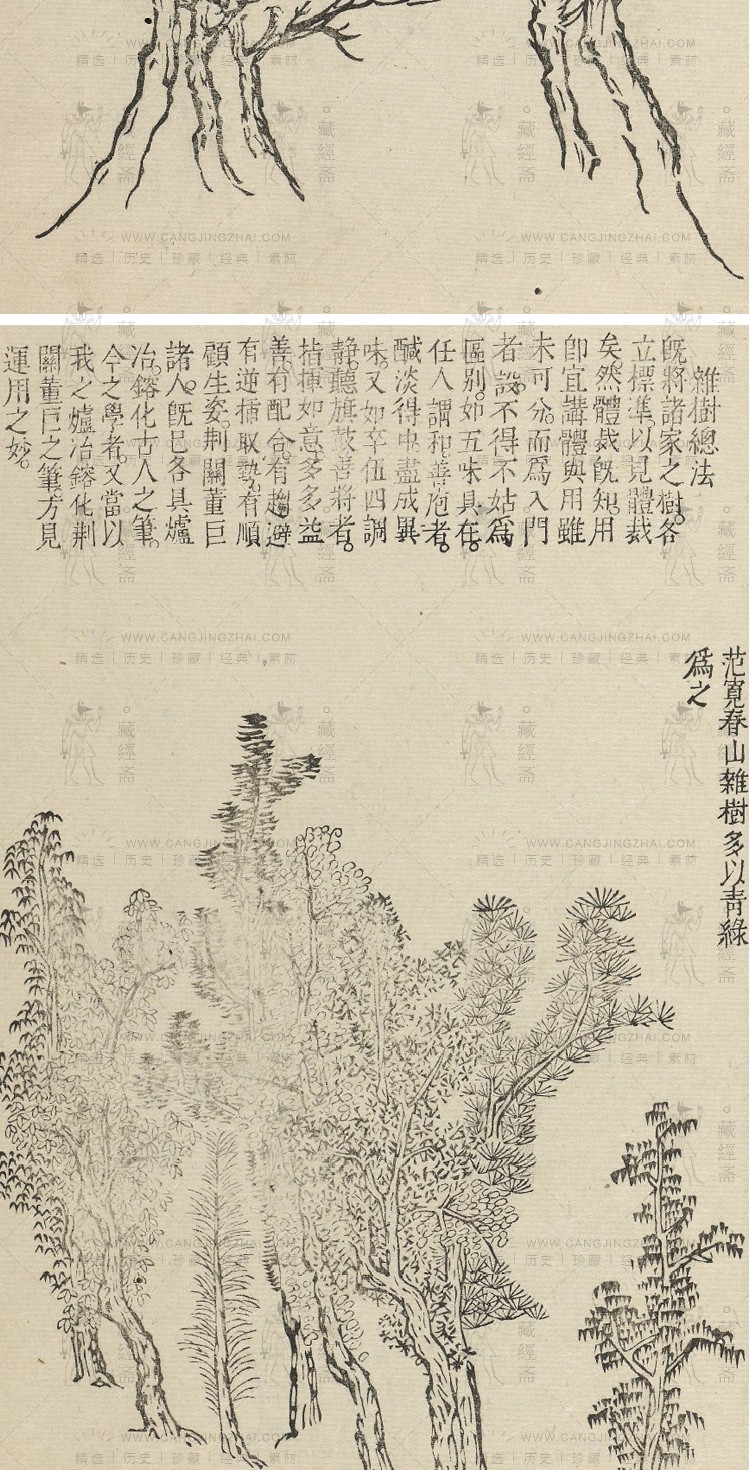 雜樹總法
旣將諸家之樹。各
立標準。以見體裁
矣。然體裁旣知。用
卽宜講。體與用雖
未可分。而爲入門
者設。不得不姑爲
區別。如五味具在。
任人謂和。善庖者。
醎淡得中。盡成異
味。又如卒伍四調
靜聽旗鼓。善將者。
指揮如意。多多益
善。有配合。有趨避
有逆揷取勢。有順
顧生姿。荆關董巨
諸人。旣已各具爐
冶。鎔化古人之筆。
今之學者。又當以
我之爐冶鎔化荆
關董巨之筆。方見
運用之妙。
范寬春山雜樹多以靑綠
爲之
WWW.CANGJINGZHAI.COM
精选|历史|珍藏|经典|素材
藏經斋